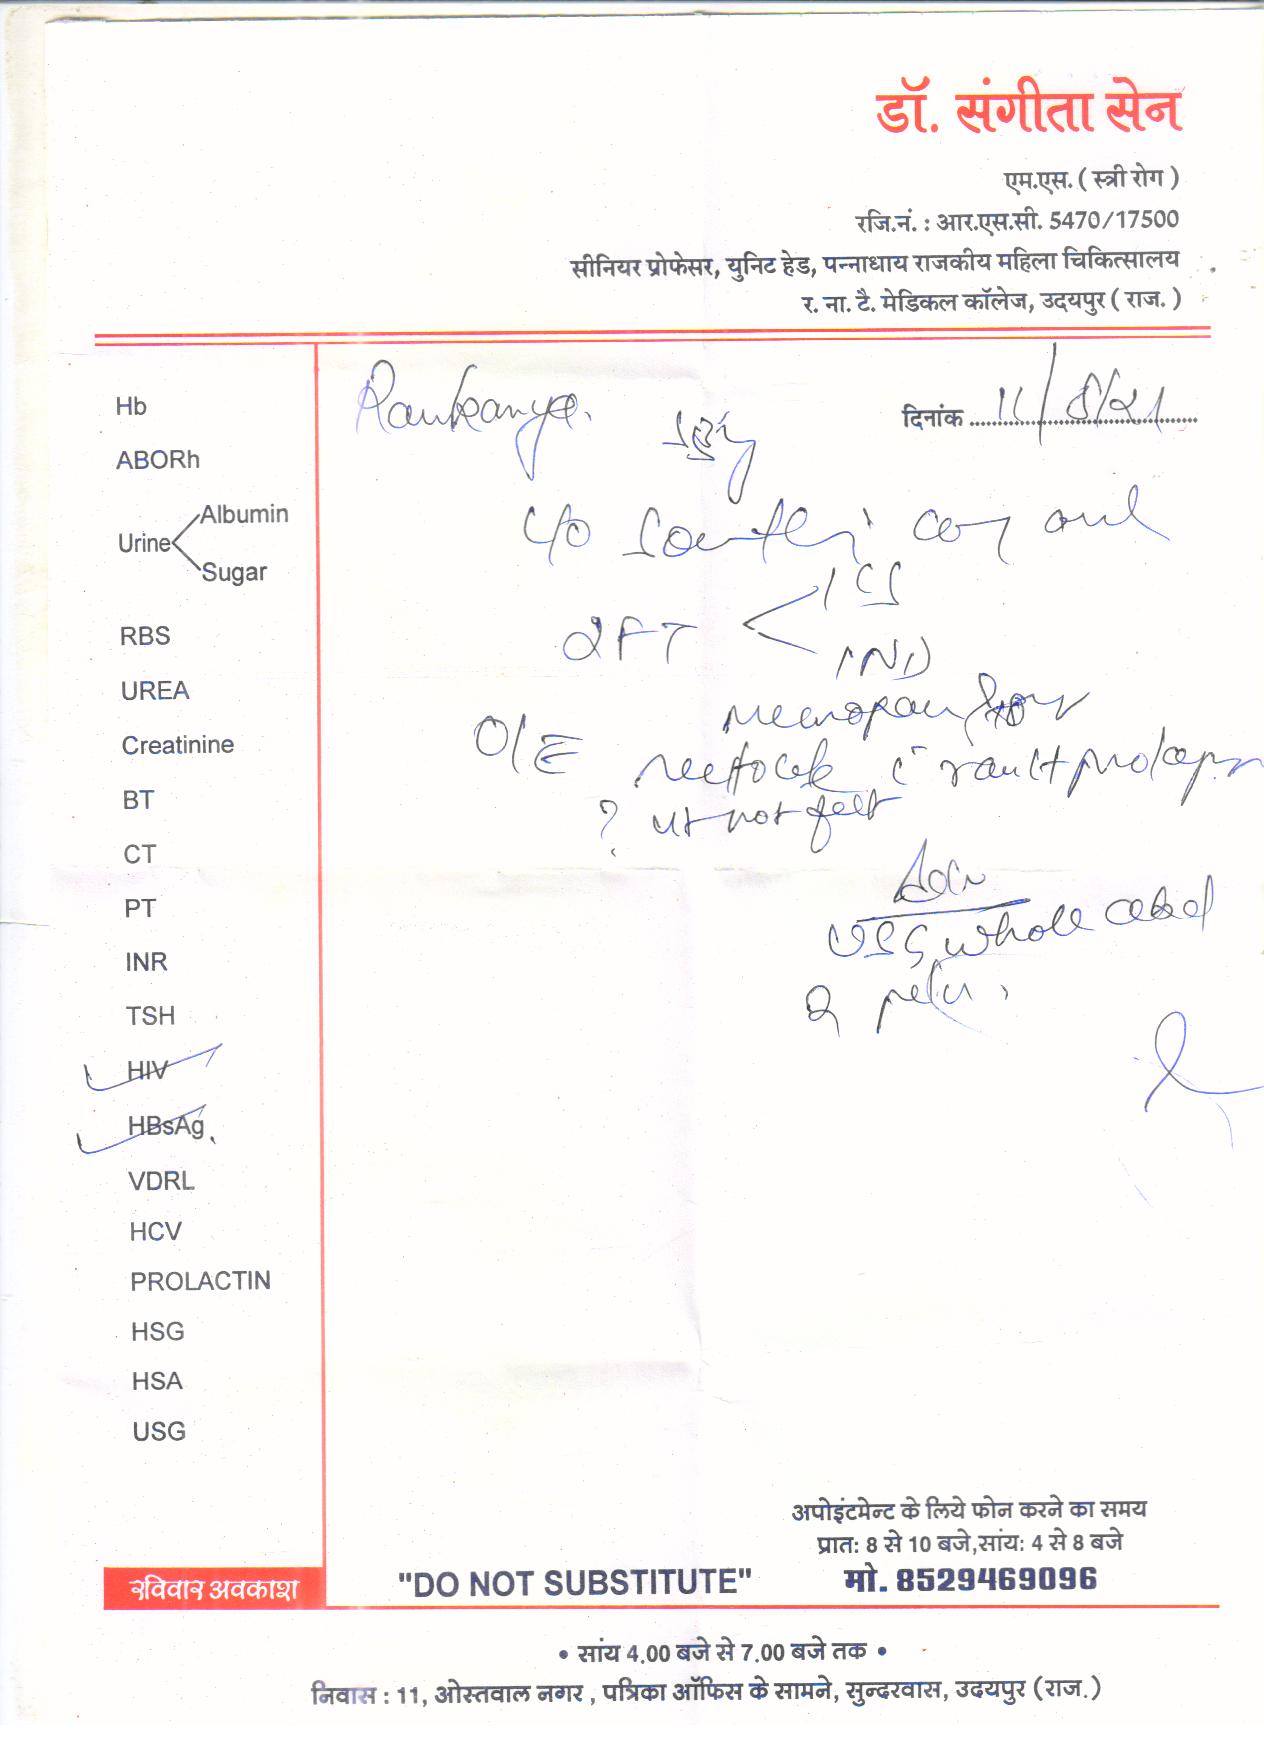 डॉ. संगीता सेन
एम.एस. ( स्त्री रोग )
रजि.नं. : आर.एस.सी. 5470/17500
सीनियर प्रोफेसर, युनिट हेड, पन्नाधाय राजकीय महिला चिकित्सालय
र. ना. टै. मेडिकल कॉलेज, उदयपुर ( राज. )
दिनांक 11/8/21
c/o something coming out
2FT < 1 CS
1 ND
O/E
rectocele c vault prolapse
? ut not felt
Adv
USG whole abd
& pelvis
Hb
ABORh
Urine Albumin
Sugar
RBS
UREA
Creatinine
BT
CT
PT
INR
TSH
HIV
HBsAg
VDRL
HCV
PROLACTIN
HSG
HSA
USG
अपोइंटमेन्ट के लिये फोन करने का समय
प्रातः 8 से 10 बजे,सांयः 4 से 8 बजे
रविवार अवकाश
"DO NOT SUBSTITUTE"
मो. 8529469096
• सांय 4.00 बजे से 7.00 बजे तक •
निवास : 11, ओस्तवाल नगर , पत्रिका ऑफिस के सामने, सुन्दरवास, उदयपुर (राज.)